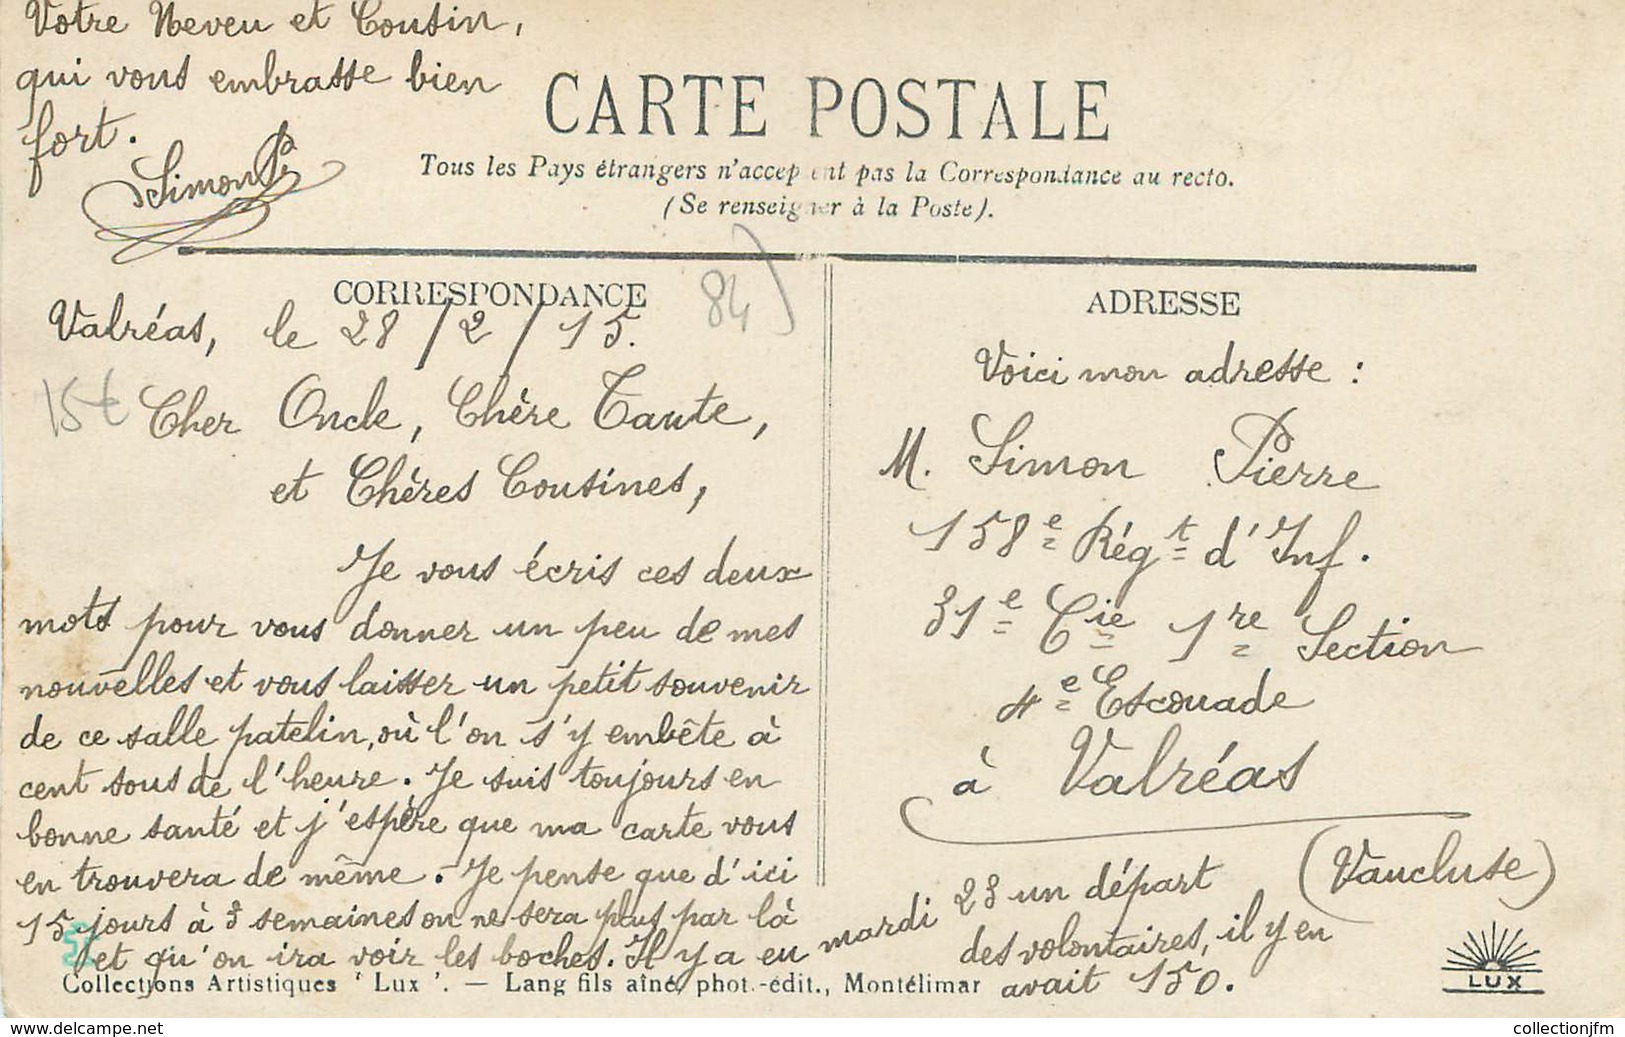 Votre Neveu et Cousin,
qui vous embrasse bien
fort.
Simon P.
CARTE POSTALE
Tous les Pays étrangers n'acceptent pas la Correspondance au recto.
(Se renseigner à la Poste).
CORRESPONDANCE
84)
ADRESSE
Valréas, le 28/2/15.
15€
Cher Oncle, Chère Tante,
et Chères Cousines,
Je vous écris ces deux
mots pour vous donner un peu de mes
nouvelles et vous laisser un petit souvenir
de ce salle patelin, où l'on s'y embête à
cent sous de l'heure. Je suis toujours en
bonne santé et j'espère que ma carte vous
en trouvera de même. Je pense que d'ici
15 jours à 3 semaines on ne sera plus par là
et qu'on ira voir les boches. Il y a eu mardi 23 un départ
des volontaires, il y en
avait 150.
Voici mon adresse :
M. Simon Pierre
158e Régt d'Inf.
31e Cie 1re Section
4e Escouade
à Valréas
(Vaucluse)
Collections Artistiques 'Lux'. — Lang fils aîné, phot.-édit., Montélimar
LUX
www.delcampe.net
collectionjfm